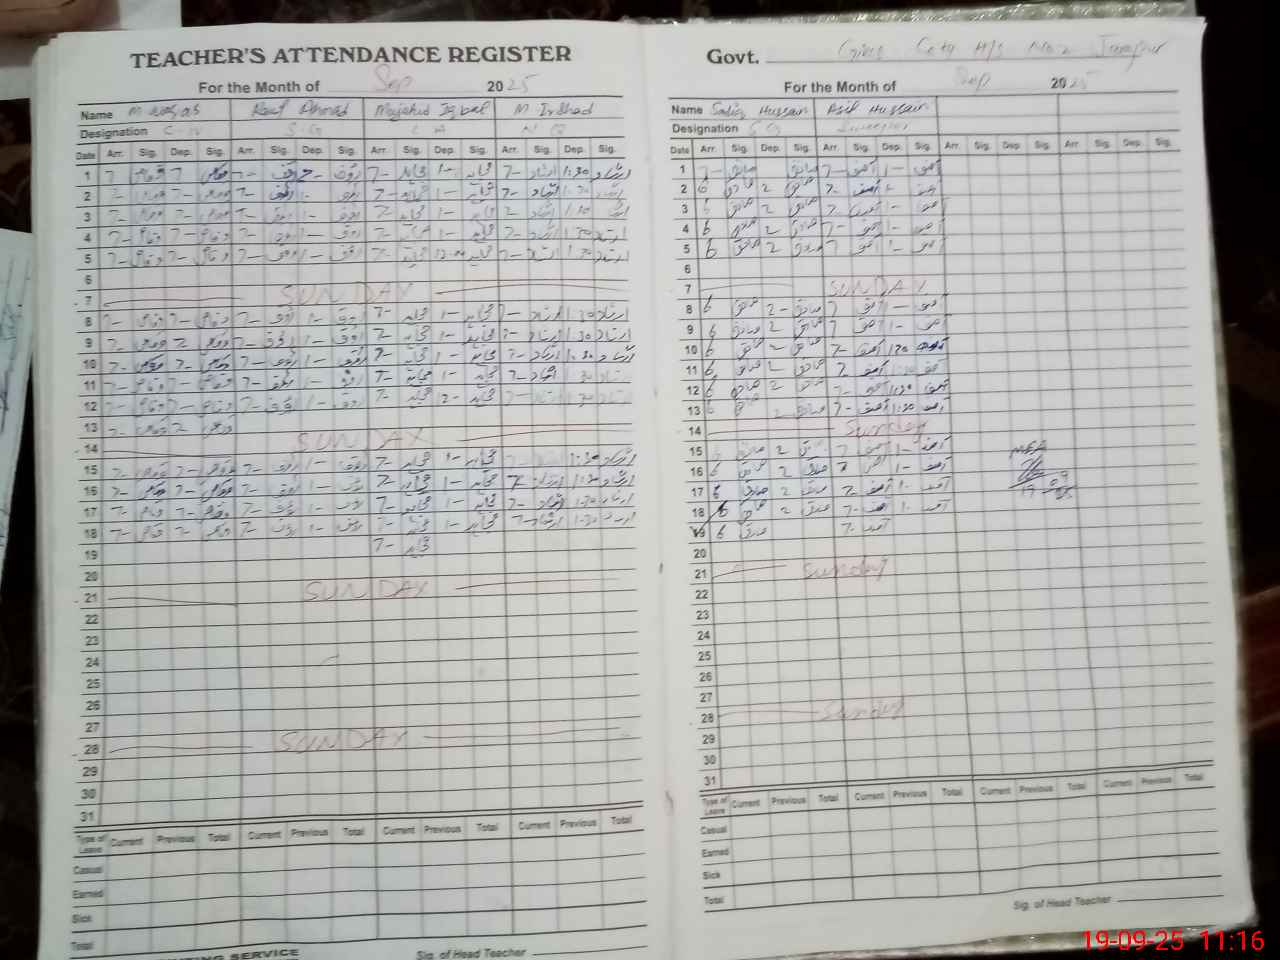 TEACHER'S ATTENDANCE REGISTER
For the Month of Sep 2025
Name M Waqas Rauf Ahmad Mujahid Iqbal M Irshad
Designation C-IV S.G L A N Q
Date Arr. Sig. Dep. Sig. Arr. Sig. Dep. Sig. Arr. Sig. Dep. Sig. Arr. Sig. Dep. Sig.
1 7 وقاص 7 وقاص 7- رؤف رؤف 7- مجاہد 1- مجاہد 7- ارشاد 1:30 ارشاد
2 7- وقاص 7- وقاص 7- رؤف 1- رؤف 7- مجاہد 1- مجاہد 7- ارشاد 1:30
3 7- وقاص 7- وقاص 7- رؤف 1- رؤف 7- مجاہد 1- مجاہد 7- ارشاد 1:30
4 7- وقاص 7- وقاص 7- رؤف 1- رؤف 7- مجاہد 1- مجاہد 7- ارشاد 1:30 ارشاد
5 7- وقاص 7- وقاص 7- رؤف 1- رؤف 7- مجاہد مجاہد 7- ارشاد 1:30 ارشاد
6
7 SUNDAY
8 7- وقاص 7- وقاص 7- رؤف 1- رؤف 7- مجاہد 1- مجاہد 7- ارشاد 1:30 ارشاد
9 7- وقاص 7 وقاص 7- رؤف 1- رؤف 7- مجاہد 1- مجاہد 7- ارشاد 1:30 ارشاد
10 7- وقاص 7 وقاص 7- رؤف 1- رؤف 7- مجاہد 1- مجاہد 7- ارشاد 1:30 ارشاد
11 7- وقاص 7- وقاص 7- رؤف 1- رؤف 7- مجاہد 1- مجاہد 7- ارشاد 1:30 ارشاد
12 7- وقاص 7- وقاص 7- رؤف 1- رؤف 7- مجاہد 12- مجاہد 7- ارشاد 1:30 ارشاد
13 7- وقاص 7 وقاص
14 SUNDAY
15 7- وقاص 7- وقاص 7- رؤف 1- رؤف 7- مجاہد 1- مجاہد 7- 1:30 ارشاد
16 7- وقاص 7- وقاص 7- رؤف 1- رؤف 7- مجاہد 1- مجاہد 7- ارشاد 1:30 ارشاد
17 7- وقاص 7- وقاص 7- رؤف 1- رؤف 7- مجاہد 1- مجاہد 7- ارشاد 1:30 ارشاد
18 7- وقاص 7- وقاص 7- رؤف 1- رؤف 7- مجاہد 1- مجاہد 7- ارشاد 1:30 ارشاد
19 7- مجاہد
20
21 SUNDAY
22
23
24
25
26
27
28 SUNDAY
29
30
31
Type of Leave Current Previous Total Current Previous Total Current Previous Total Current Previous Total
Casual
Earned
Sick
Total
SERVICE Sig. of Head Teacher
Govt. City H/S No 2
For the Month of Sep 2025
Name Sadiq Hussain Asif Hussain
Designation
Date Arr. Sig. Dep. Sig. Arr. Sig. Dep. Sig. Arr. Sig. Dep. Sig. Arr. Sig. Dep. Sig.
1 7- صادق صادق 7- آصف 1- آصف
2 6 صادق 2 صادق 7- آصف 1 آصف
3 6 صادق 2 صادق 7- آصف 1- آصف
4 6 صادق 2 صادق 7- آصف 1- آصف
5 6 صادق 2 صادق 7 آصف 1- آصف
6
7 SUNDAY
8 6 صادق 2- صادق 7 آصف 1- آصف
9 6 صادق 2- صادق 7 آصف 1- آصف
10 6 صادق 2- صادق 7- آصف 1:30 آصف
11 6 صادق 2 صادق 7 آصف 1:30 آصف
12 6 صادق 2 صادق 7- آصف 1:30 آصف
13 6 صادق 2 صادق 7- آصف 1:30 آصف
14 Sunday
15 6 صادق 2 صادق 7 آصف 1- آصف
16 6 صادق 2 صادق 7 آصف 1- آصف MEA
17 6 صادق 2 صادق 7- آصف 1- آصف 17
18 6 صادق 2 صادق 7- آصف 1- آصف
19 6 صادق 7- آصف
20
21 Sunday
22
23
24
25
26
27
28 Sunday
29
30
31
Type of Leave Current Previous Total Current Previous Total Current Previous Total Current Previous Total
Casual
Earned
Sick
Total
Sig. of Head Teacher
19-09-25 11:16